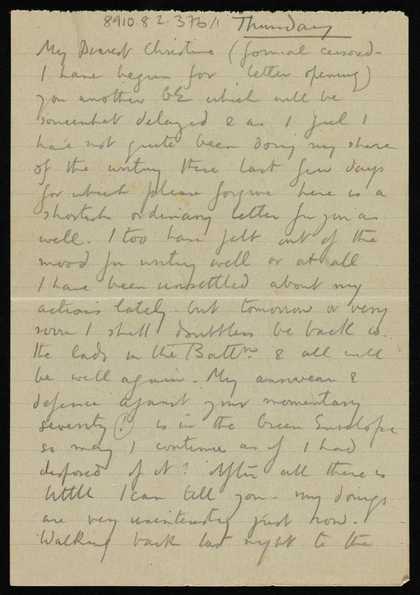 8910.82.373/1 Thursday
My Dearest Christine (formal censored-
I have begun for letter opening)
you another GE which will be
somewhat delayed & as I feel I
have not quite been doing my share
of the writing these last few days
for which please forgive here is a
shortish ordinary letter for you as
well. I too have felt out of the
mood for writing well or at all
I have been unsettled about my
actions lately but tomorrow or very
soon I shall doubtless be back w.
the lads in the Battn. & all will
be well again. My answer &
defence against your momentary
severity (?) is in the Green Envelope
so may I continue as if I had
disposed of it? After all there is
little I can tell you - my doings
are very uninteresting just now.
Walking back last night to the